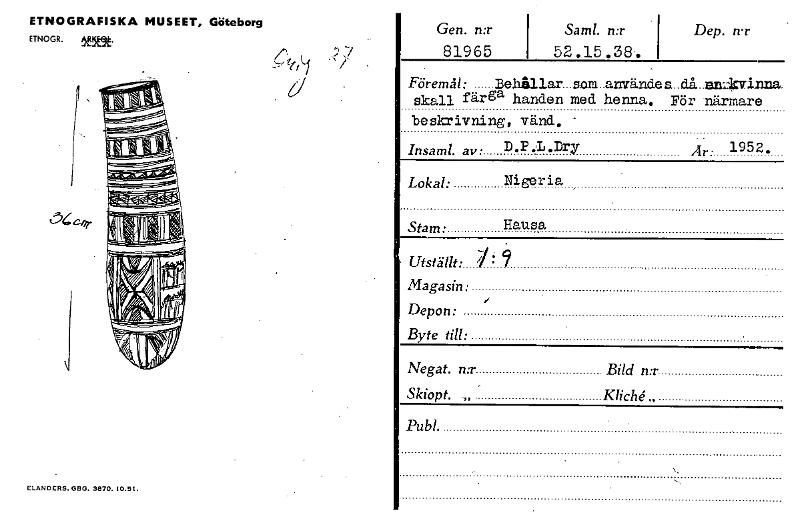 ETNOGRAFISKA MUSEET, Göteborg
ETNOGR. ARKEOL.
36cm
ELANDERS. GBG. 3870. 10.51.
Gen. n:r Saml. n:r Dep. n:r
81965 52.15.38.
Föremål: Behållar som användes då en kvinna
skall färga handen med henna. För närmare
beskrivning, vänd.
Insaml. av: D.P.L.Dry År: 1952.
Lokal: Nigeria
Stam: Hausa
Utställt: 1:9
Magasin:
Depon:
Byte till:
Negat. n:r Bild n:r
Skiopt. „ Kliché „
Publ.